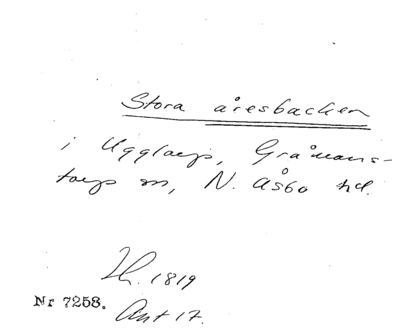 Stora åresbacken
i Ugglarp, Gråmans-
torps sn, N. Åsbo hd.
Lh. 1819
Nr 7258. Ant 17.